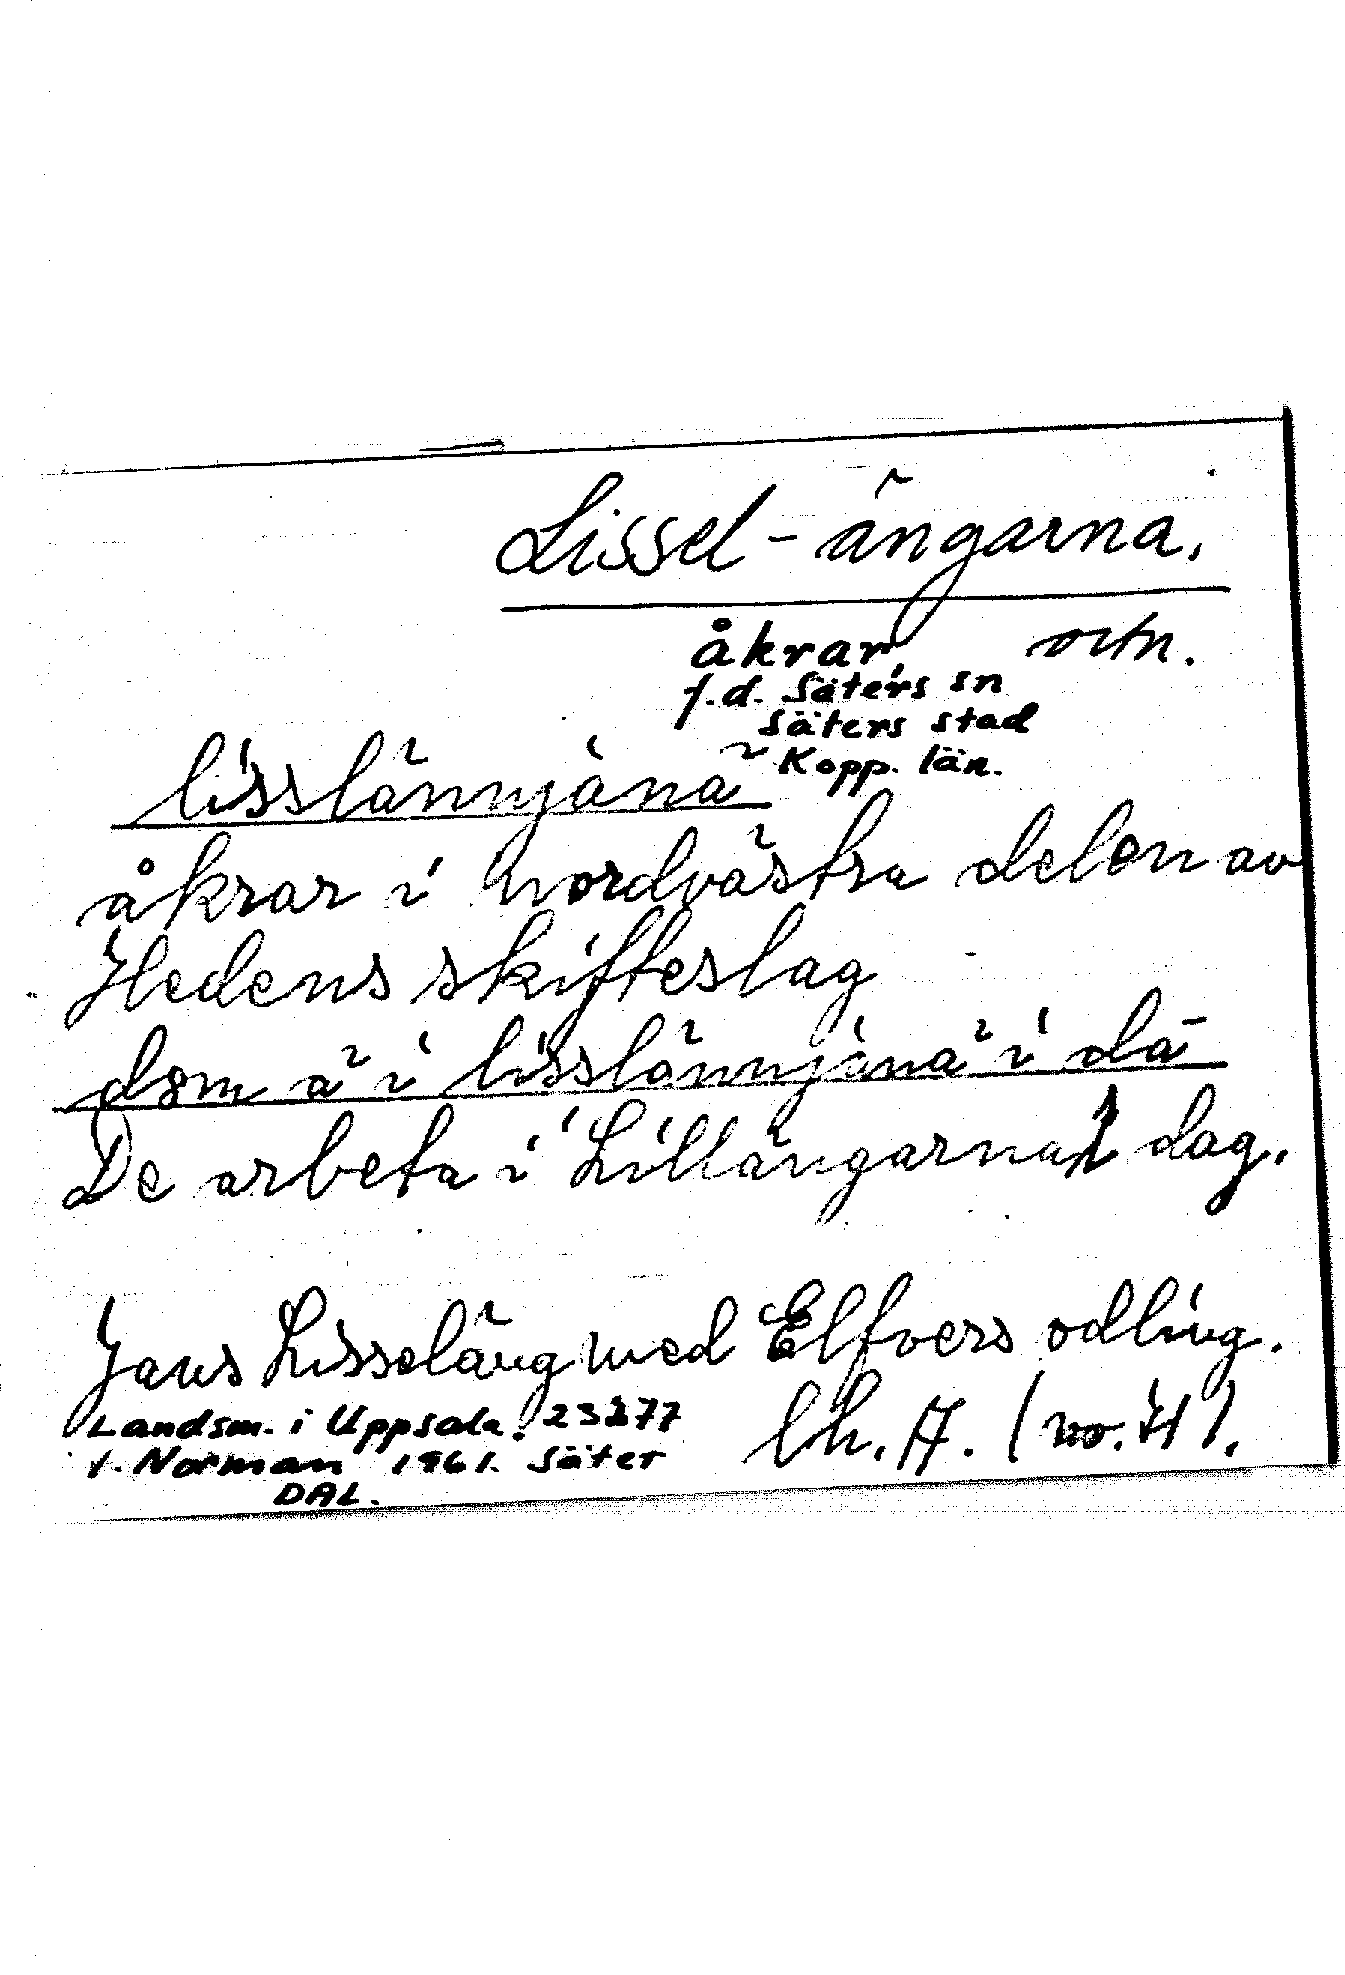 Lissel-ängarna.
åkrar, ortn.
f.d. Säters sn
Säters stad
Kopp. län.
lisslännjana
åkrar i nordvästra delen av
Hedens skifteslag
dɵm ä i lisslännjana i da
De arbeta i Lillängarna i dag.
Jans Lisseläng med Elfvers odling.
lh. A. (nr. H).
Landsm. i Uppsala. 23277
V. Norman 1961. Säter
DAL.